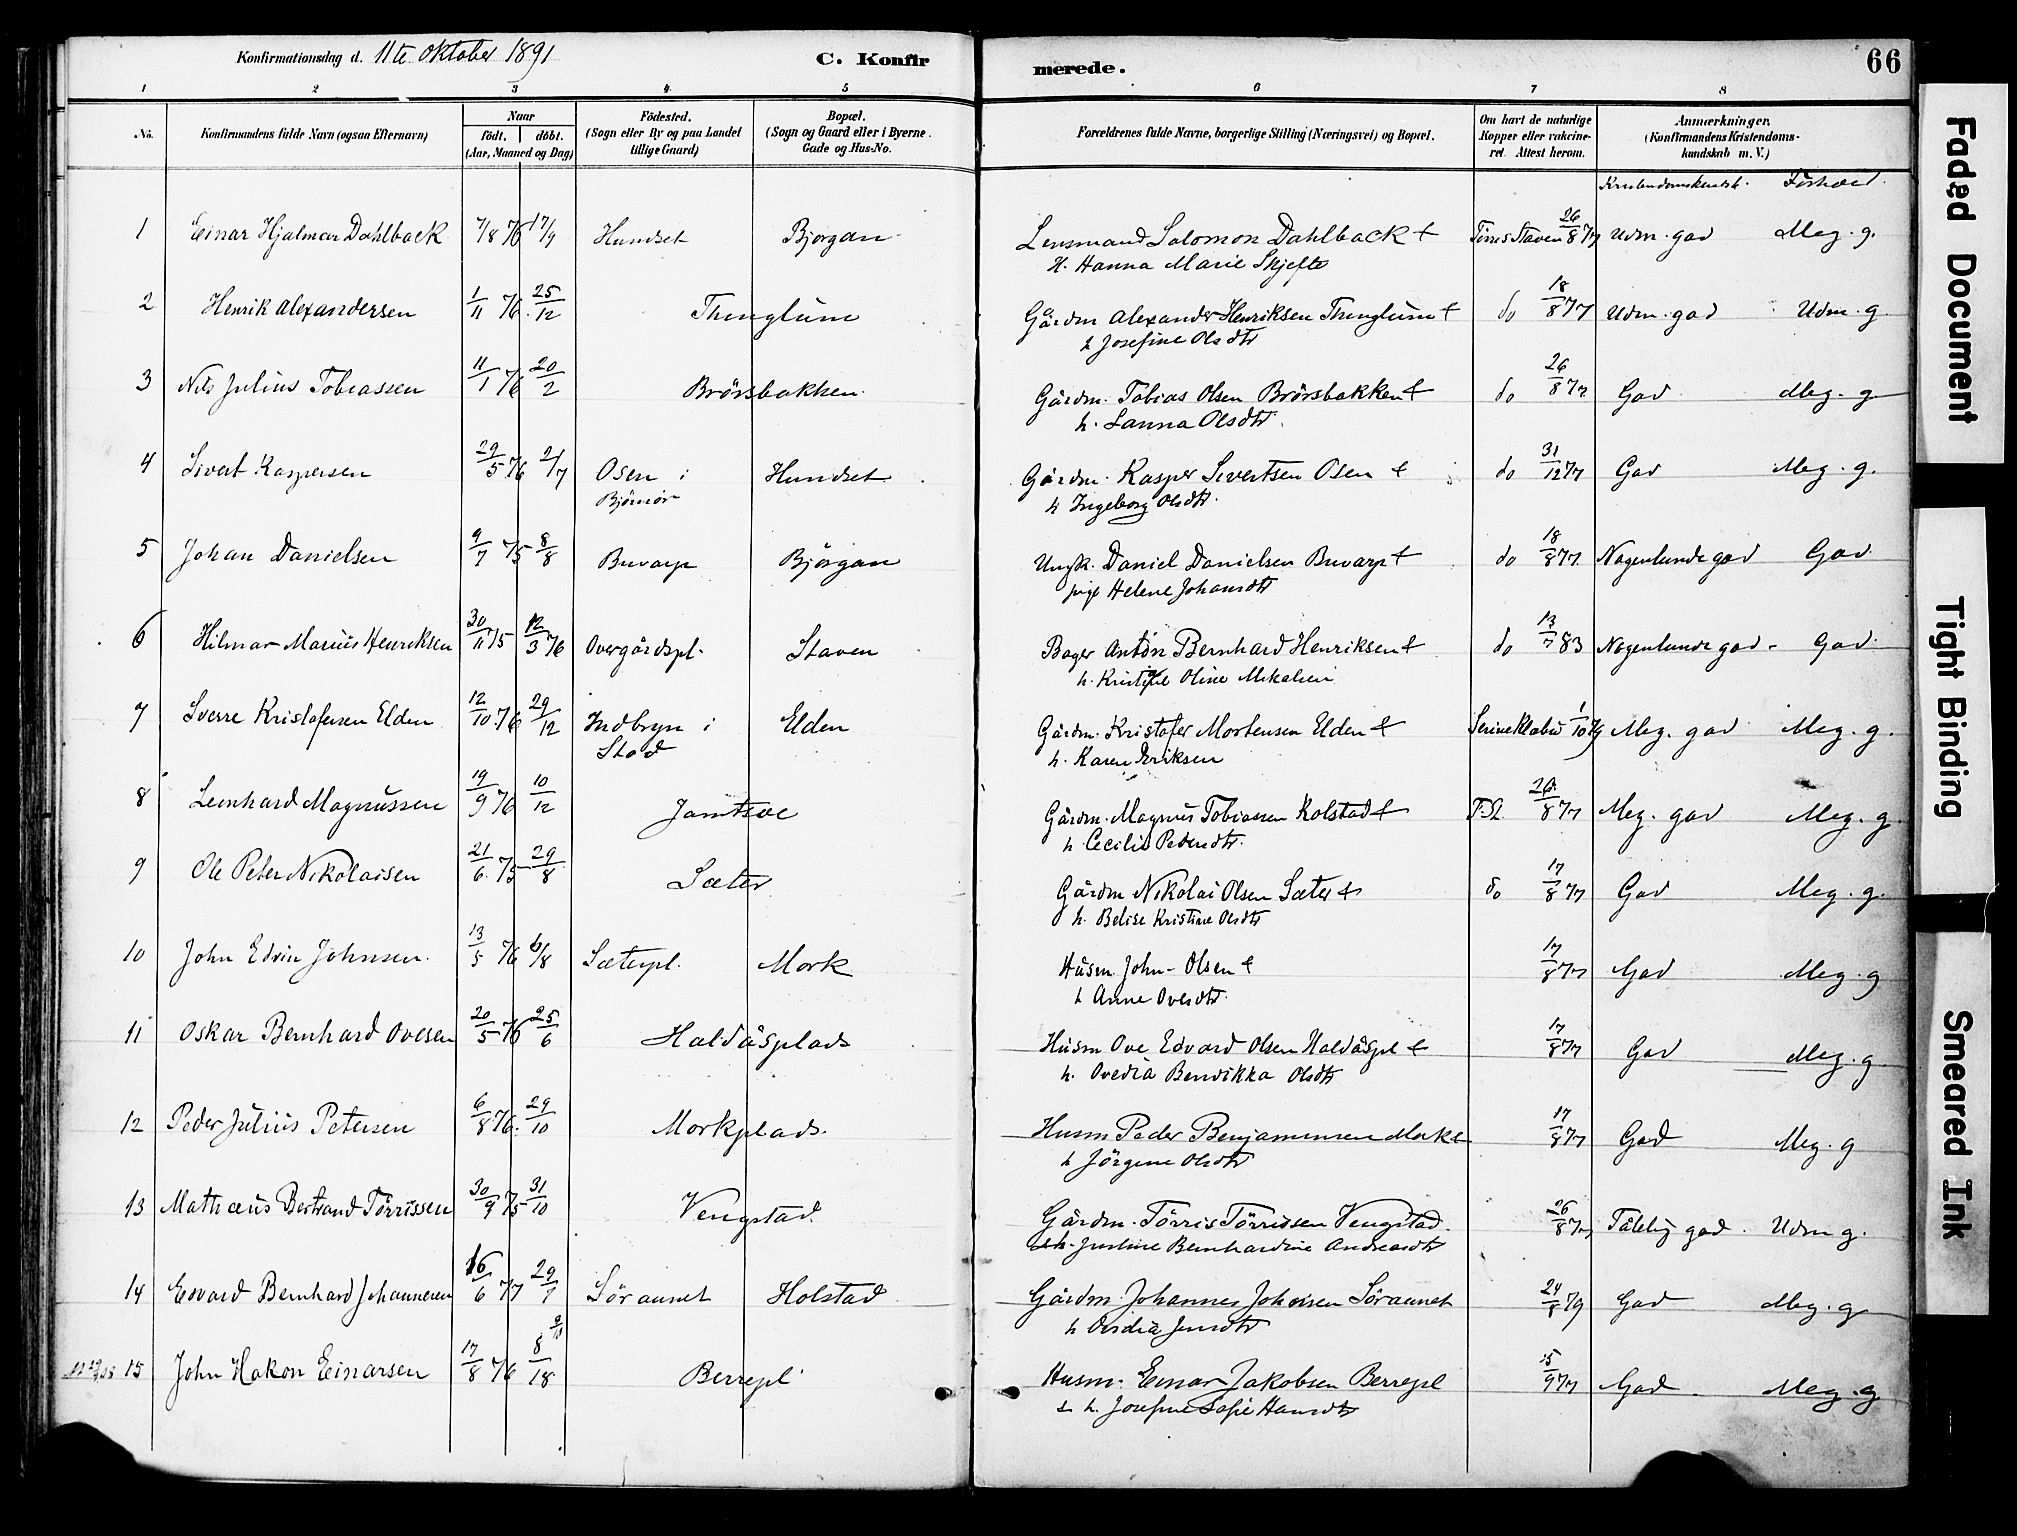 Konfirmationsdag d. 11te Oktober 1891 C. Konfirmerede. 66
1 2 3 4 5 6 7 8
No. Konfirmandens fulde Navn (ogsaa Efternavn) Naar födt. döbt. (Aar, Maaned og Dag) Födested. (Sogn eller By og paa Landet tillige Gaard) Bopæl. (Sogn og Gaard eller i Byerne Gade og Hus-No. Forældrenes fulde Navne, borgerlige Stilling (Næringsvei) og Bopæl. Om havt de naturlige Kopper eller vakcineret. Attest herom. Anmærkninger. (Konfirmandens Kristendomskundskab m. V.)
Kristendomskundsk. Forhold.
1 Einar Hjalmar Dahlback 7/8 76 17/9 Hundset Bjørgan Lensmand Salomon Dahlback & Tørris Staven 26/8 77 Udm. god Meg. g.
H. Hanna Marie Skjefte
2 Henrik Alexandersen 1/11 76 25/12 Thinglum Gårdm Alexander Henriksen Thinglum & do 18/8 77 Udm. god Udm. g.
h Josefine Olsdtr
3 Nils Julius Tobiassen 11/1 76 20/2 Brørsbakken Gårdm. Tobias Olsen Brørsbakken & do 26/8 77 God Meg. g
h. Lanna Olsdtr.
4 Sivert Kaspersen 29/5 76 2/7 Osen i Hundset Gårdm. Kasper Sivertsen Osen & do 31/12 77 God Meg. g.
Bjørnør h Ingeborg Olsdtr.
5 Johan Danielsen 9/7 75 8/8 Buvarp Bjørgan Ungk. Daniel Danielsen Buvarp & do 18/8 77 Nogenlunde god God
pige Helene Johansdtr
6 Hilmar Marius Henriksen 30/11 75 12/3 76 Overgårdspl. Staven Bager Anton Bernhard Henriksen & do 13/7 83 Nogenlunde god God
h. Oline Mikalsen
7 Sverre Kristofersen Elden 12/10 76 29/12 Indbryn i Elden Gårdm. Kristofer Mortensen Elden & 1/10 Meg. god Meg. g.
Stod h. Karen Eriksen
8 Lenhard Magnussen 19/9 76 10/12 Jamtsve Gårdm. Magnus Tobiassen Kolstad & T.S. 26/8 77 Meg. god Meg. g.
h. Cecilie Pedersdtr.
9 Ole Peter Nikolaisen 21/6 75 29/8 Sæter Gårdm Nikolai Olsen Sæter & do 17/8 77 God Meg. g.
h. Belise Kristine Olsdtr
10 John Edvin Johnsen. 13/5 76 6/8 Sæterpl. Mork Husm. John Olsen & 17/8 77 God Meg. g
h Anne Ovesdtr.
11 Oskar Bernhard Ovesen 20/5 76 25/6 Haldåsplads Husm Ove Edvard Olsen Haldåspl & 17/8 77 God Meg. g
h. Ovedia Bendikka Olsdtr
12 Peder Julius Petersen 6/8 76. 29/10 Morkplads. Husm Peder Benjaminsen Mork & 17/8 77 God Meg. g
h Jørgine Olsdtr
13 Mathæus Bertrand Tørrissen 30/9 75 31/10 Vengstad. Gårdm. Tørris Tørrissen Vengstad. 26/8 77 Tålelig god. Udm g.
& h. Justine Bernhardine Andreasdtr
14 Edvard Bernhard Johannesen 16/6 77 29/7 Söraunet Holstad Gårdm. Johannes Johnsen Söraunet 24/8 79 God Meg. g
h Ovedia Jensdtr
15 John Hakon Einarsen 17/8 76 8/18 9/11 Berrepl Husm. Einar Jakobsen Berrepl 15/9 77 God Meg. g
& h. Josefine Sofie Hansdtr
Faded Document
Tight Binding
Smeared Ink